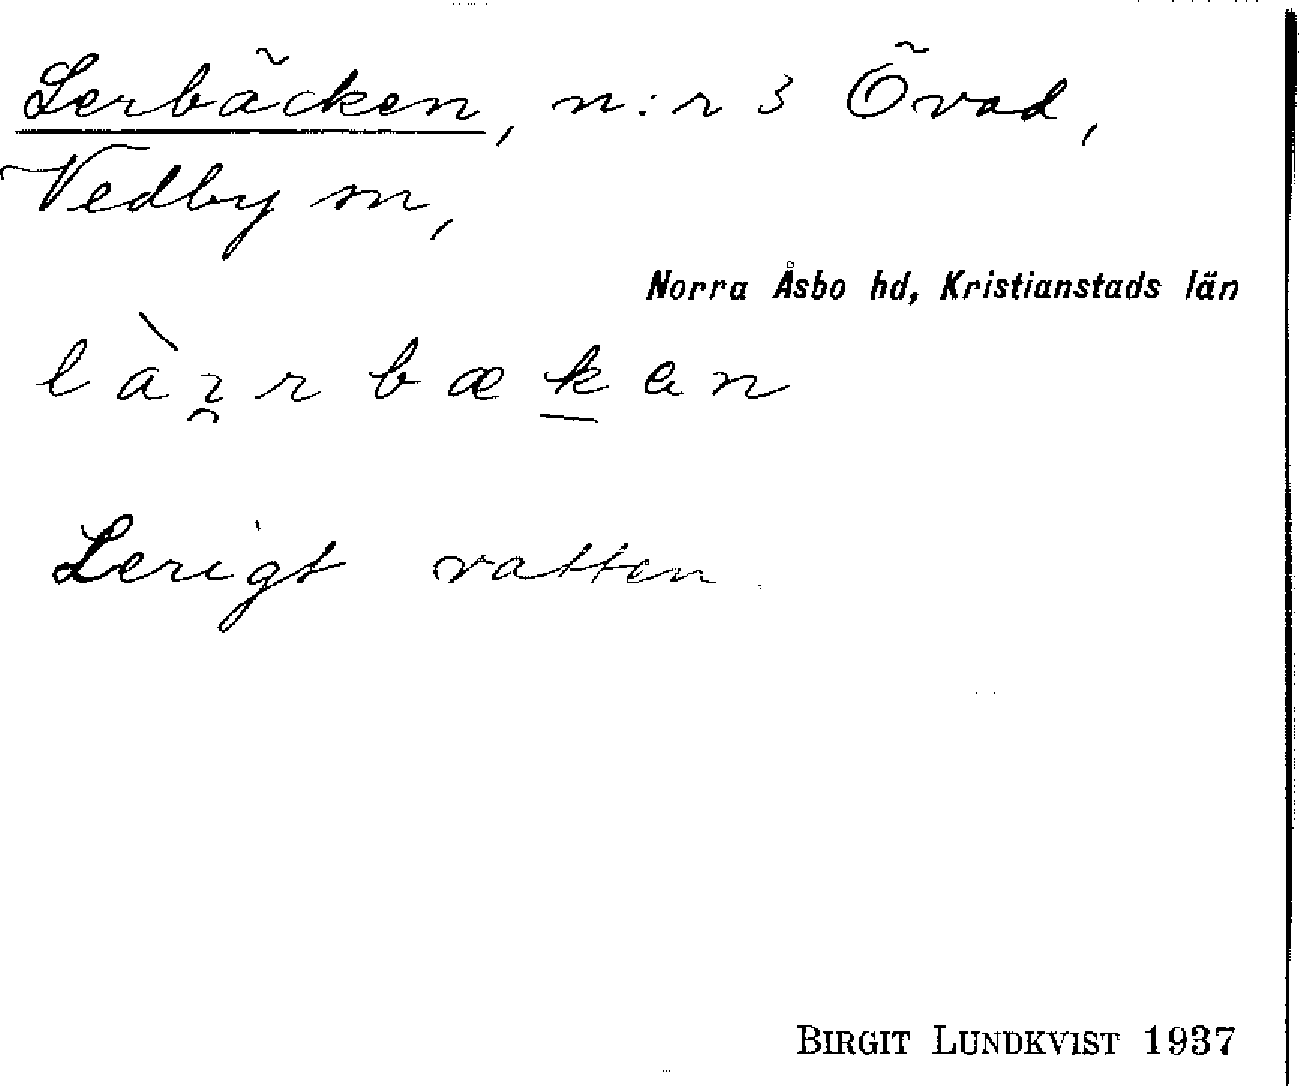 Lerbäcken, n:r 3 Övad,
Vedby sn,
Norra Åsbo hd, Kristianstads län
Lerigt vatten.
BIRGIT LUNDKVIST 1937